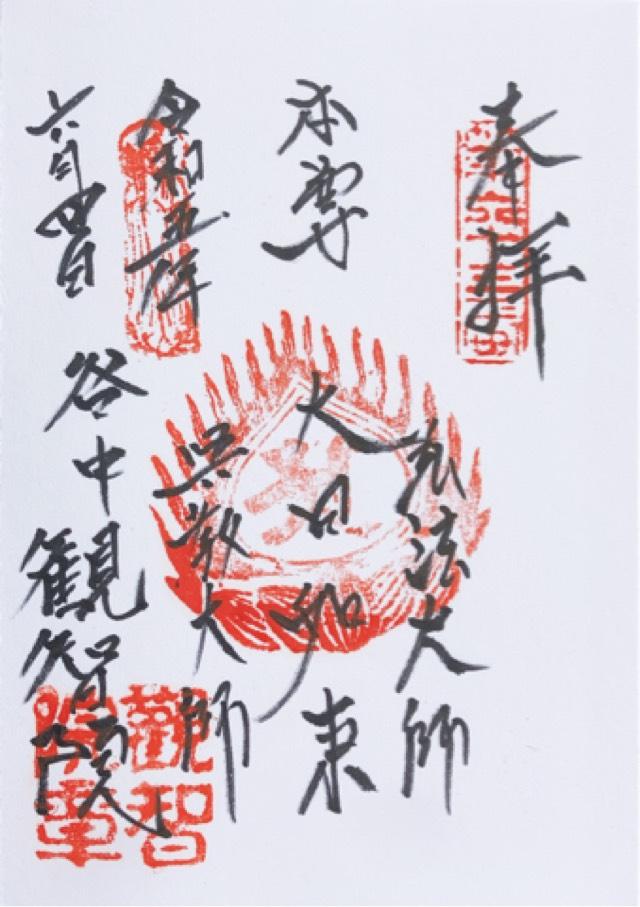 奉拝
本尊
弘法大師
大日如来
興教大師
令和五年
六月四日
谷中
観智院
觀智
院章